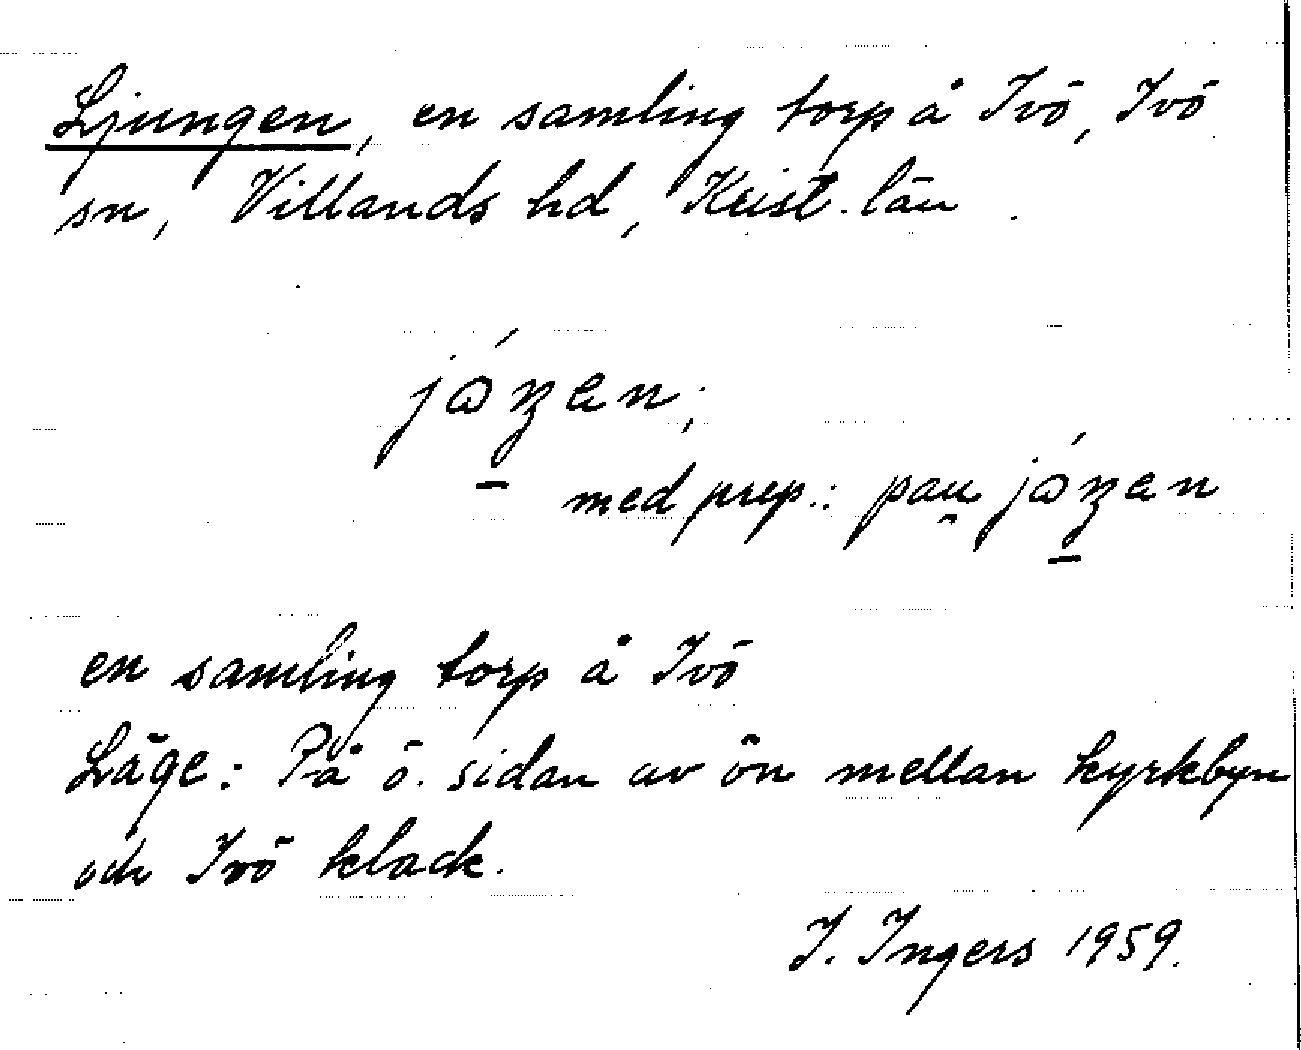 Ljungen, en samling torp å Ivö, Ivö
sn, Villands hd, Krist. län.
jåŋen;
med prep.: pau̯ jåŋen
en samling torp å Ivö
Läge: På ö. sidan av ön mellan kyrkbyn
och Ivö klack.
I. Ingers 1959.